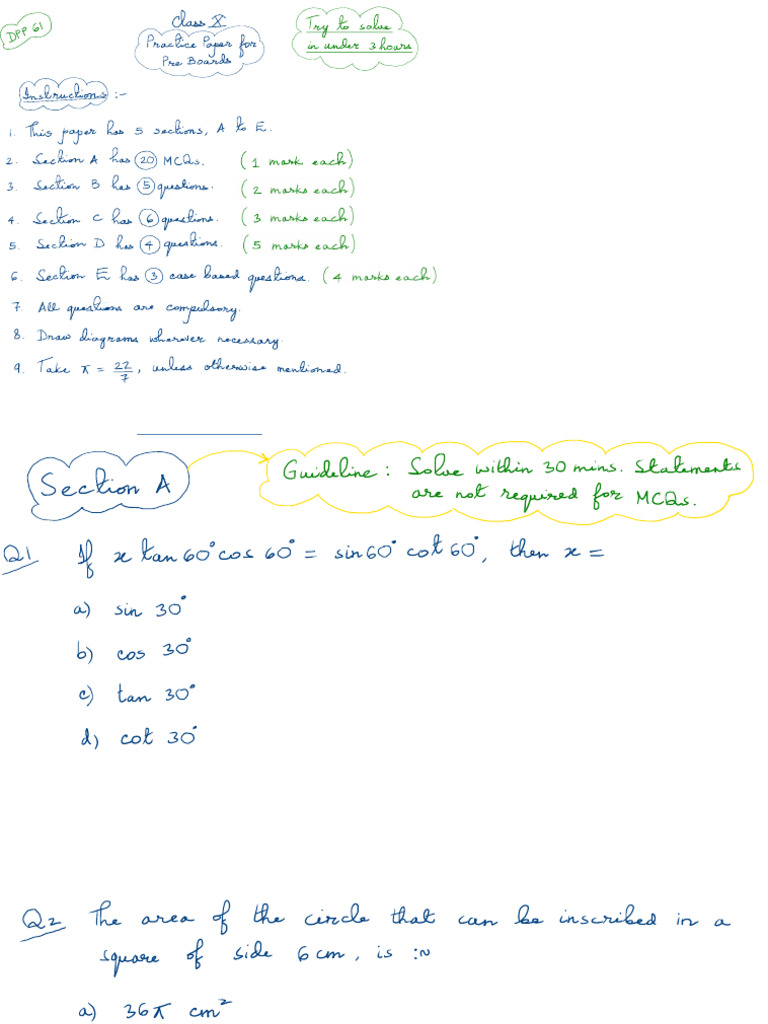 DPP 61
Class X
Practice Paper for
Pre Boards
Try to solve
in under 3 hours
Instructions :-
1. This paper has 5 sections, A to E.
2. Section A has 20 MCQs. (1 mark each)
3. Section B has 5 questions. (2 marks each)
4. Section C has 6 questions. (3 marks each)
5. Section D has 4 questions. (5 marks each)
6. Section E has 3 case based questions. (4 marks each)
7. All questions are compulsory.
8. Draw diagrams wherever necessary.
9. Take π = 22/7, unless otherwise mentioned.
Section A
Guideline: Solve within 30 mins. Statements
are not required for MCQs.
Q1 If x tan 60° cos 60° = sin 60° cot 60°, then x =
a) sin 30°
b) cos 30°
c) tan 30°
d) cot 30°
Q2 The area of the circle that can be inscribed in a
square of side 6 cm, is :~
a) 36π cm²